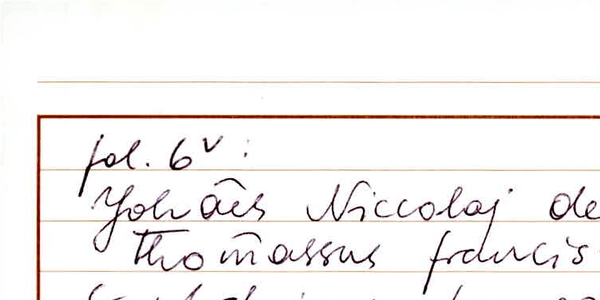 fol. 6v:
Yohāēs Niccolaj de
Thom̄assus francis